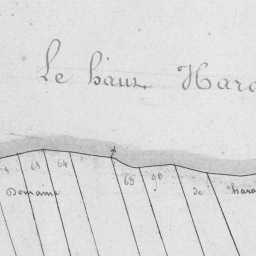 Le haut Hara
63 64 65 66
Domaine de hara